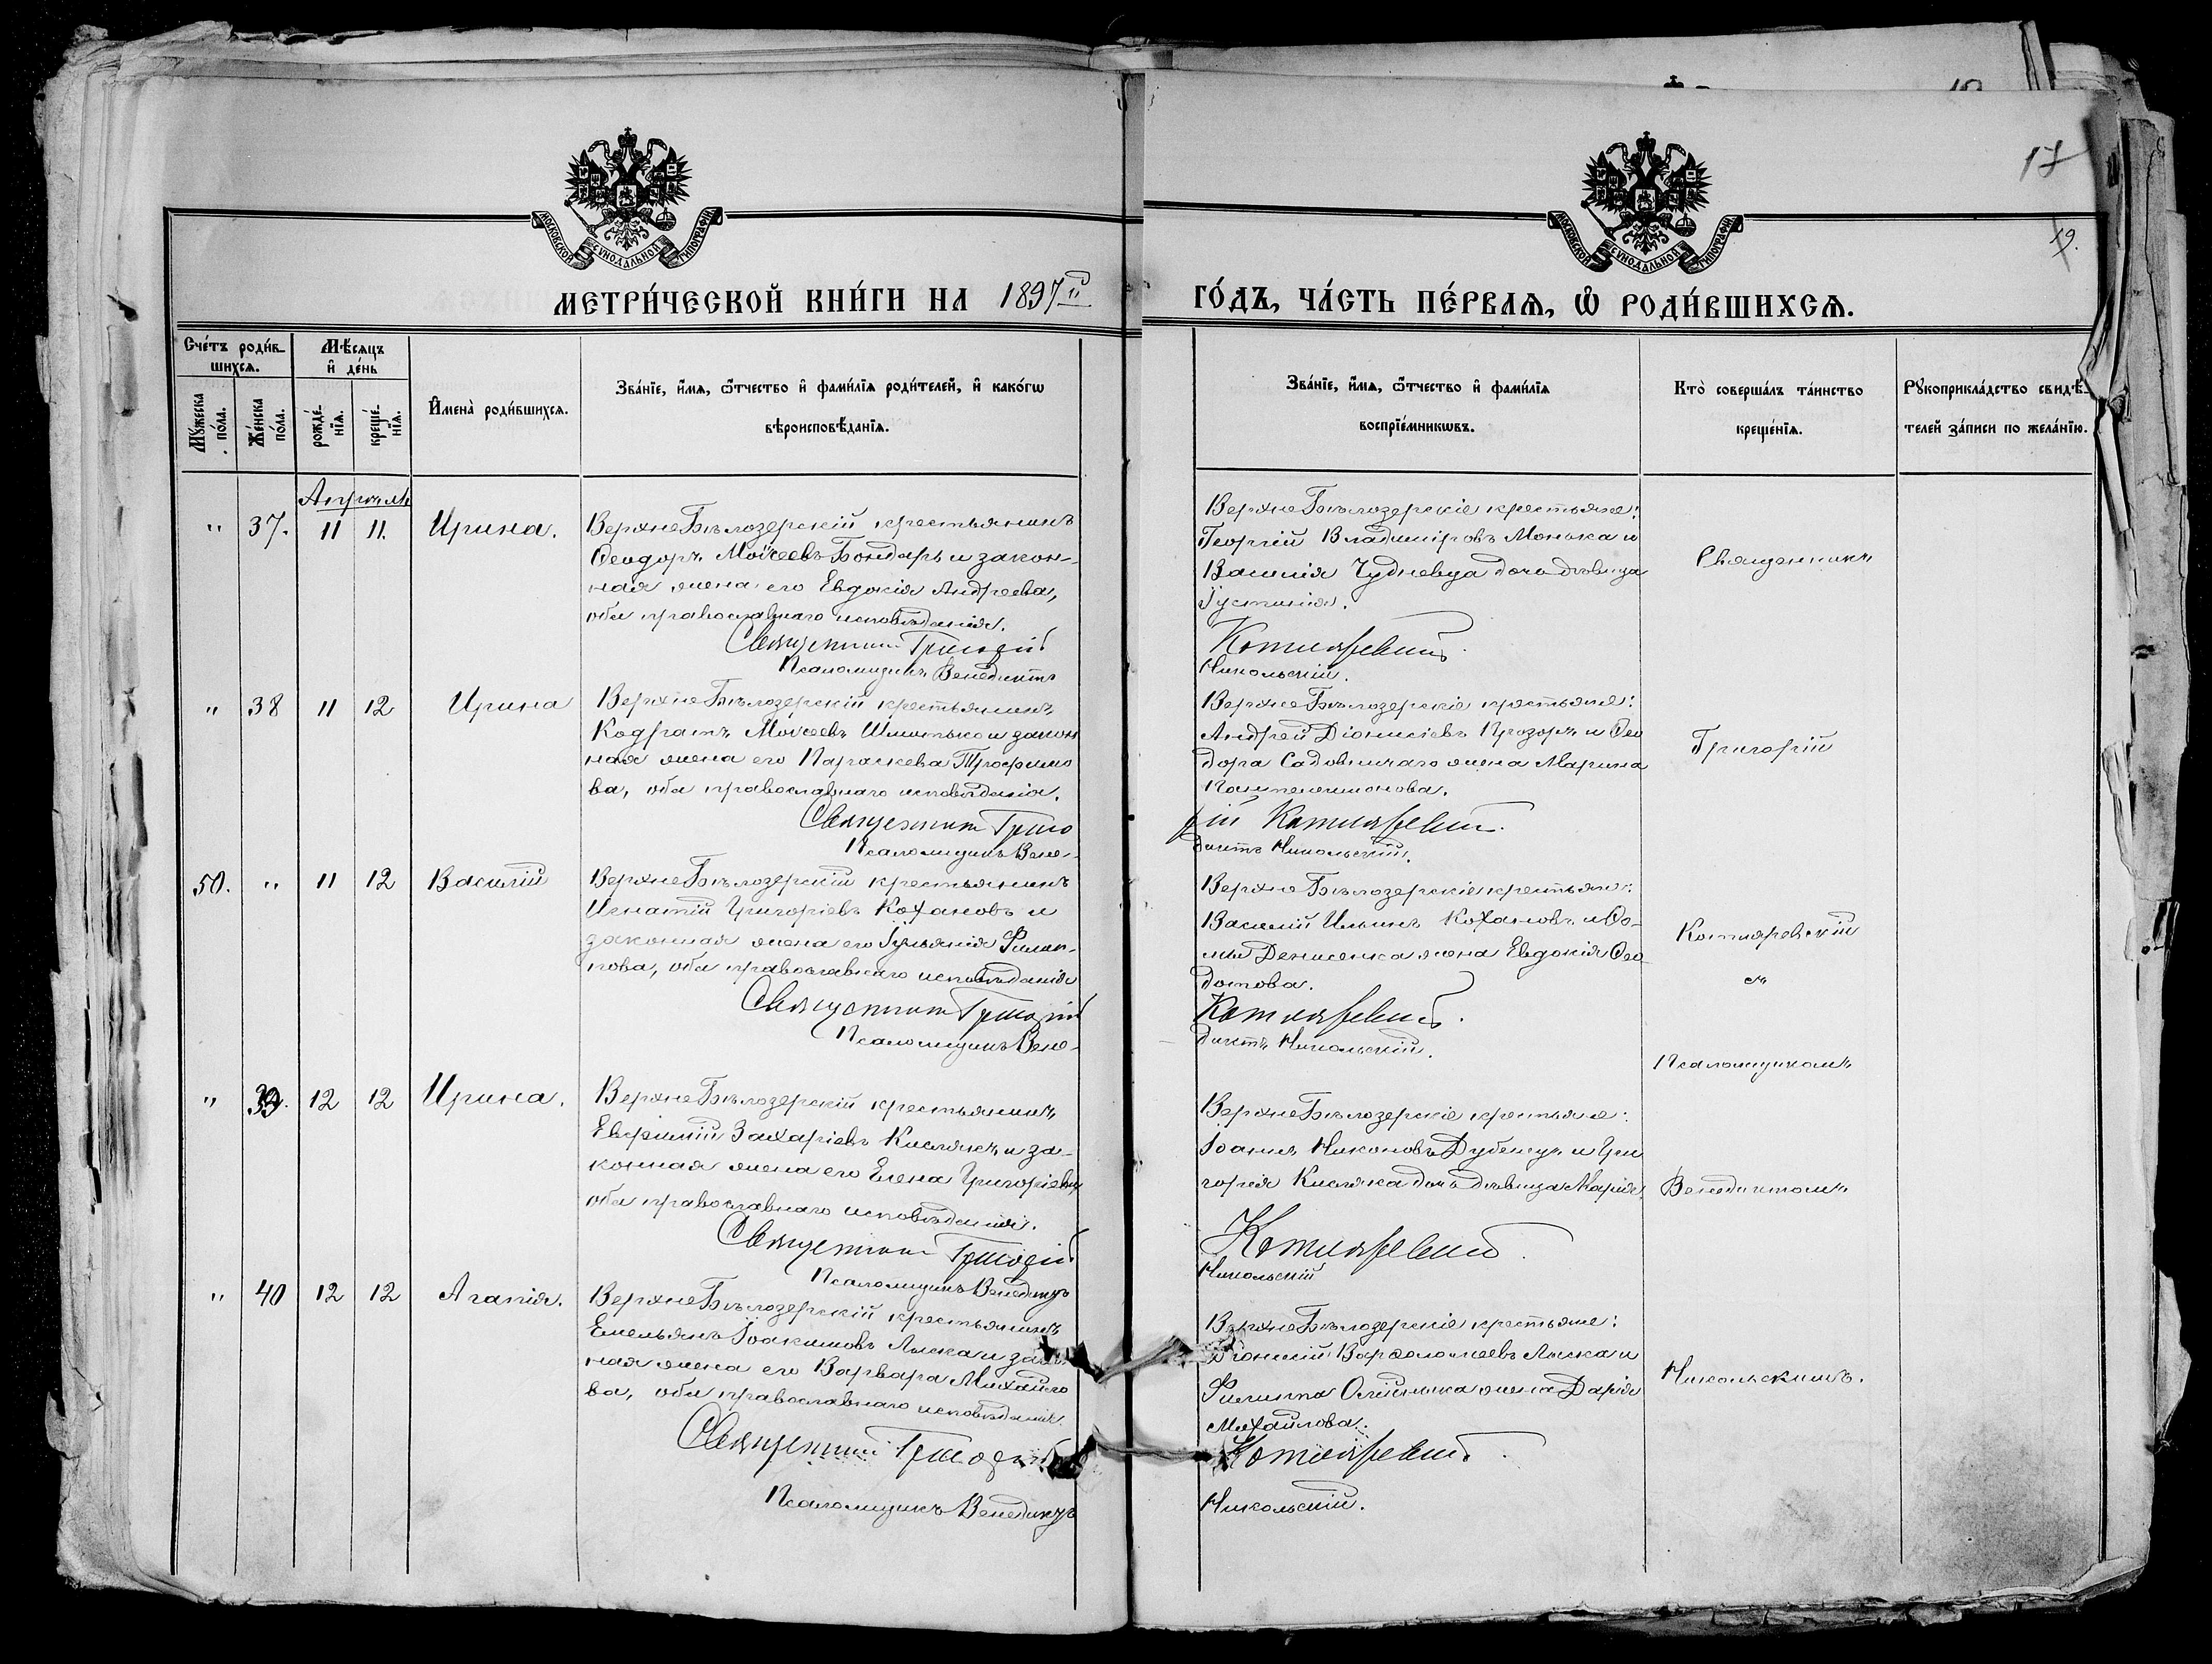 17
19.
МОСКОВСКОЙ СѴНОДАЛЬНОЙ ТИПОГРАФІИ
МОСКОВСКОЙ СѴНОДАЛЬНОЙ ТИПОГРАФІИ
МЕТРИ́ЧЕСКОЙ КНИ́ГИ НА 1897й
ГО́ДЪ, ЧА́СТЬ ПЕ́РВАѦ, Ѽ РОДИ́ВШИХСѦ.
Сче́тъ роди́в-
шихсѧ.
Мѣ́сѧцъ
и҆ де́нь
Мꙋ́жеска по́ла.
Же́нска по́ла.
рожде́-
нїѧ.
креще́-
нїѧ.
И҆мена̀ роди́вшихсѧ.
Зва́нїе, и҆́мѧ, ѻ҆́тчество и҆ фами́лїѧ роди́телей, и҆ како́гѡ
вѣроисповѣ́данїѧ.
Зва́нїе, и҆́мѧ, ѻ҆́тчество и҆ фами́лїѧ
воспрїе́мникѡвъ.
Кто̀ соверша́лъ та́инство
креще́нїѧ.
Рꙋкоприкла́дство свидѣ́-
телей за́писи по жела́нїю.
Апрѣль
" 37. 11 11. Ирина.
ВерхнеБѣлозерскій крестьянинъ
Ѳеодоръ Моѵсеевъ Бондарь и закон-
ная жена его Евдокія Андреева,
оба православнаго исповѣданія.
Священникъ Григорій
Псаломщикъ Венедиктъ
ВерхнеБѣлозерскіе крестьяне:
Георгій Владиміровъ Монька и
Василія Чудневца дочь дѣвица
Іустинія.
Котляревскій
Никольскій.
Священникъ
" 38 11 12 Ирина
ВерхнеБѣлозерскій крестьянинъ
Кодратъ Моѵсеевъ Шмитько и закон
ная жена его Параскева Трофимо
ва, оба православнаго исповѣданія.
Священникъ Григо
Псаломщикъ Вене-
ВерхнеБѣлозерскіе крестьяне:
Андрей Діонисіевъ Прозоръ и Ѳео
дора Садовничаго жена Марина
Пантелеимонова.
рій Котляревскій.
диктъ Никольскій.
Григорій
50. " 11 12 Василій
ВерхнеБѣлозерскій крестьянинъ
Игнатій Григоріевъ Кохановъ и
законная жена его Іуліанія Филип-
пова, оба православнаго исповѣданія
Священникъ Григорій
Псаломщикъ Вене-
ВерхнеБѣлозерскіе крестьяне:
Василій Ильинъ Кохановъ и Ѳо-
мы Денисенка жена Евдокія Ѳео
дотова.
Котляревскій.
диктъ Никольскій.
Котляревскій
съ
Псаломщикомъ
" 39. 12 12 Ирина.
ВерхнеБѣлозерскій крестьянинъ
Евфимій Захаріевъ Кислякъ и за-
конная жена его Елена Григоріева,
оба православнаго исповѣданія.
Священникъ Григорій
Псаломщикъ Венедиктъ
ВерхнеБѣлозерскіе крестьяне:
Іоаннъ Никоновъ Дубенцъ и Гри
горія Кисляка дочь дѣвица Марія
Котляревскій.
Никольскій
Венедиктомъ
" 40 12 12 Агапія.
ВерхнеБѣлозерскій крестьянинъ
Емельянъ Іоакимовъ Лиска и закон
ная жена его Варвара Михайло
ва, оба православнаго исповѣданія
Священникъ Григорій
Псаломщикъ Венедиктъ
ВерхнеБѣлозерскіе крестьяне:
Діонисій Варѳоломеевъ Лиска и
Филиппа Олійника жена Дарія
Михайлова.
Котляревскій.
Никольскій.
Никольскимъ.